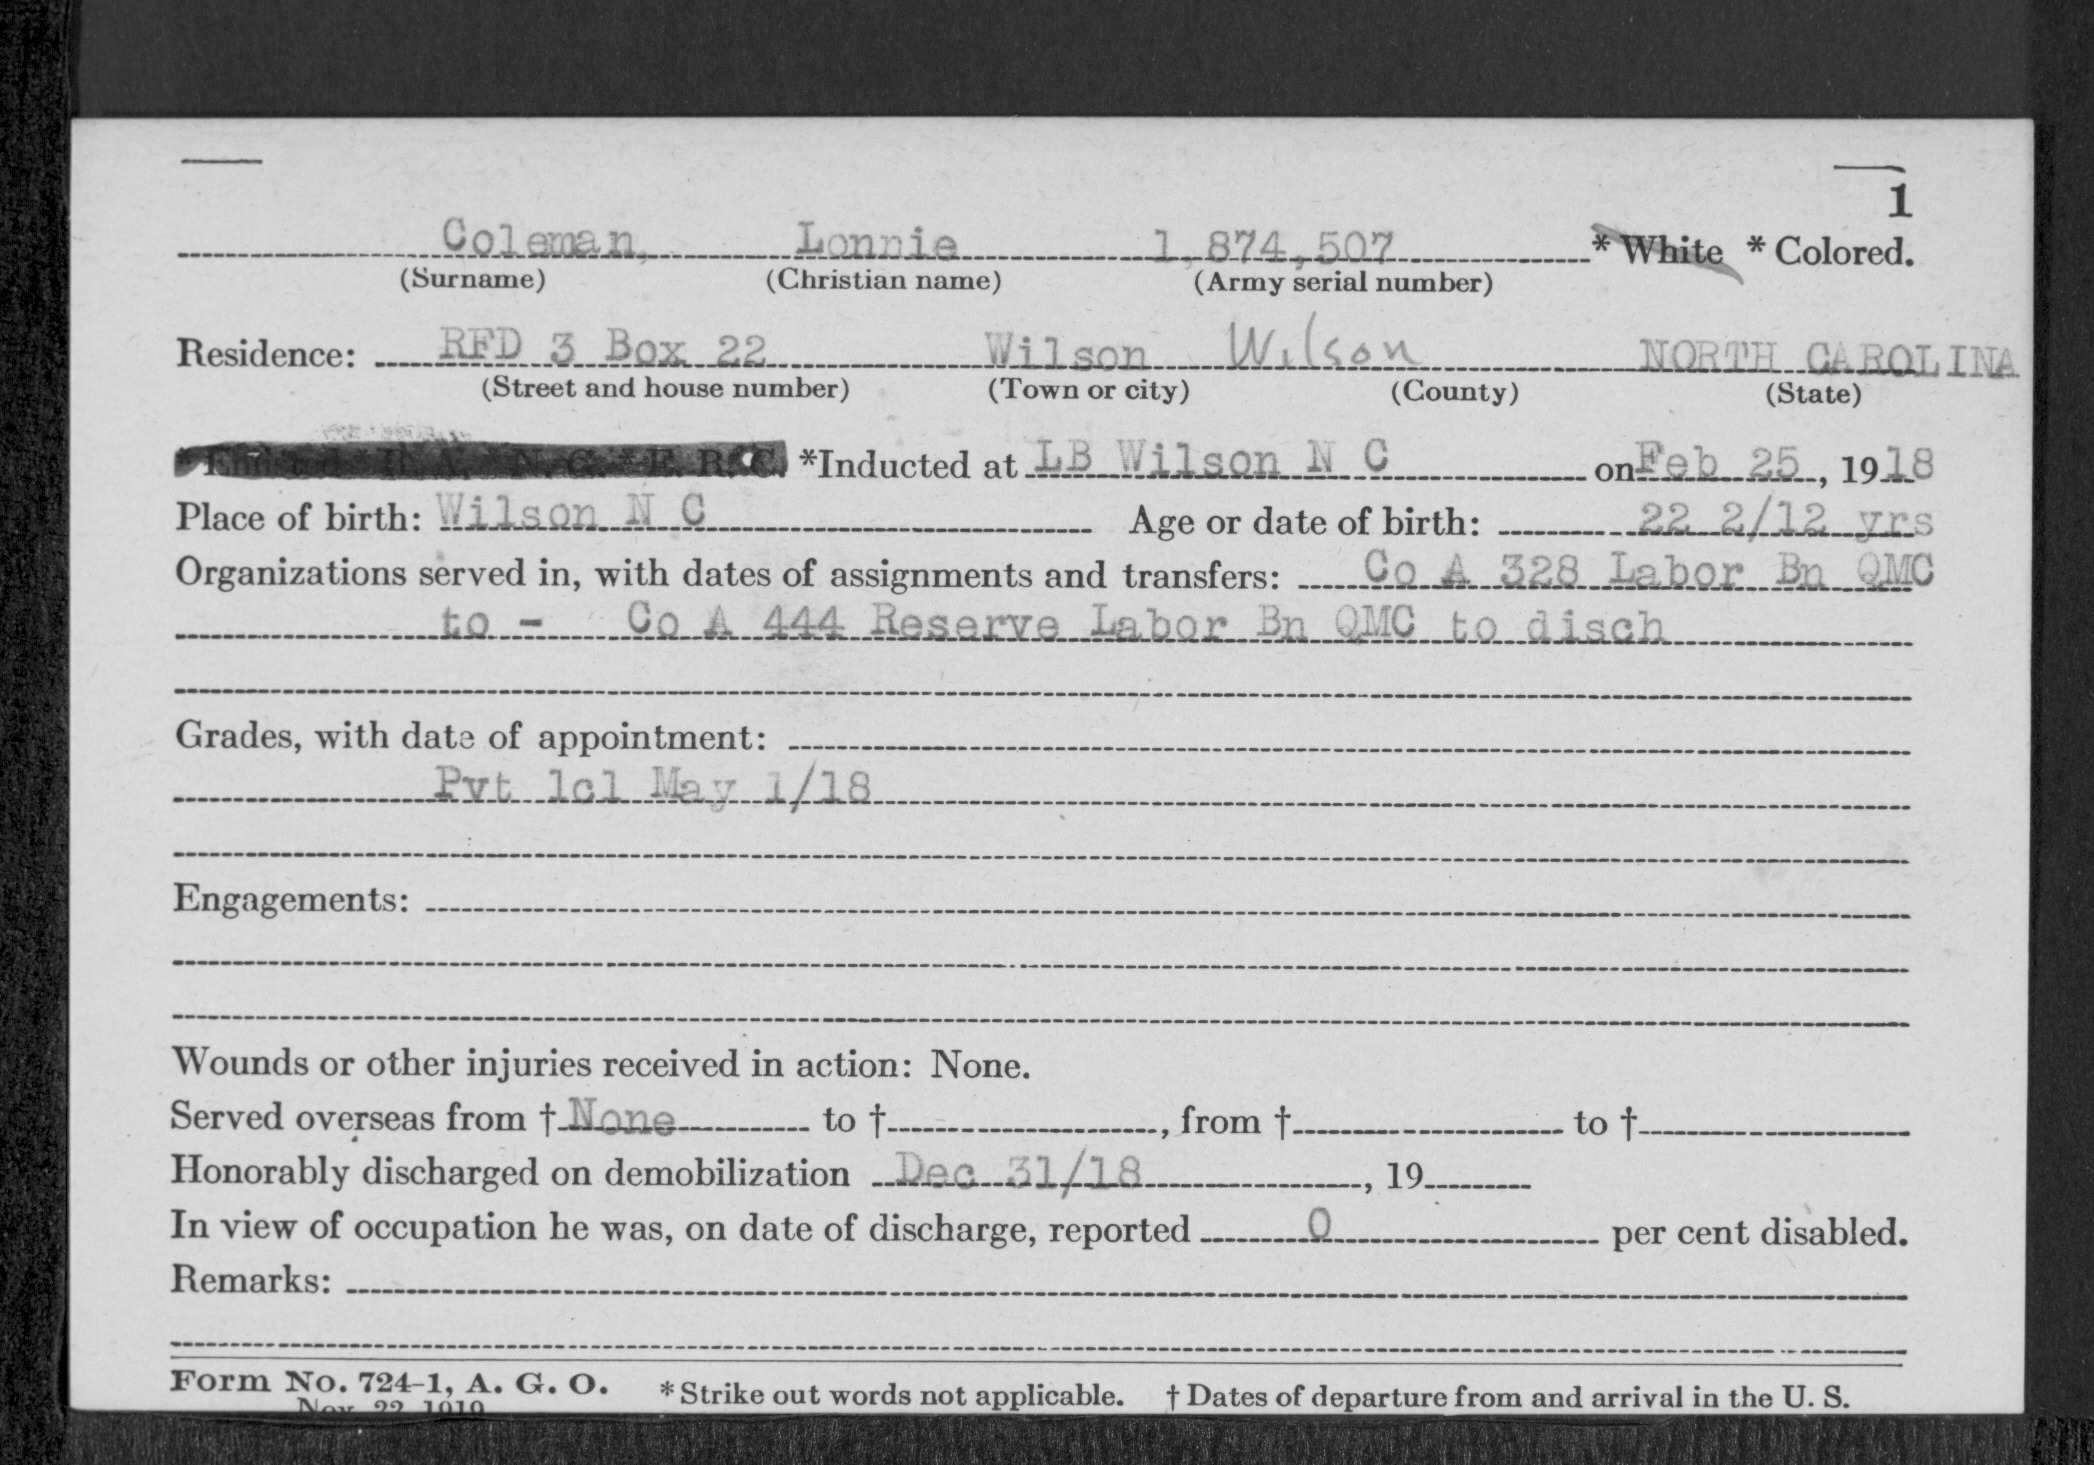 1
Coleman, Lonnie 1,874,507 * White * Colored.
(Surname) (Christian name) (Army serial number)
Residence: RFD 3 Box 22 Wilson Wilson NORTH CAROLINA
(Street and house number) (Town or city) (County) (State)
* Enlisted * R. A. * N. G. * E. R. C. *Inducted at LB Wilson N C on Feb 25, 1918
Place of birth: Wilson N C Age or date of birth: 22 2/12 yrs
Organizations served in, with dates of assignments and transfers: Co A 328 Labor Bn QMC
to - Co A 444 Reserve Labor Bn QMC to disch
Grades, with date of appointment:
Pvt 1cl May 1/18
Engagements:
Wounds or other injuries received in action: None.
Served overseas from † None to †, from † to †
Honorably discharged on demobilization Dec 31/18, 19
In view of occupation he was, on date of discharge, reported 0 per cent disabled.
Remarks:
Form No. 724-1, A. G. O. * Strike out words not applicable. † Dates of departure from and arrival in the U. S.
Nov. 22, 1919